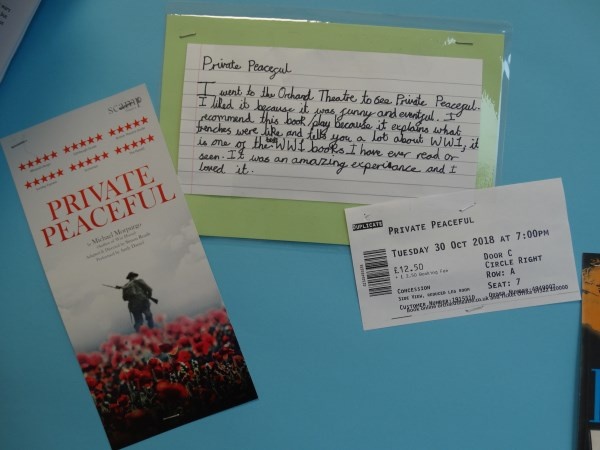 PRIVATE
PEACEFUL
by Michael Morpurgo
Private Peaceful
I went to the Orchard Theatre to see Private Peaceful.
I liked it because it was funny and eventful. I
recommend this book play because it explains what
trenches were like and tells you a lot about WW1, it
is one of the best WW1 books I have ever read or
seen. It was an amazing experience and I
loved it.
DUPLICATE
PRIVATE PEACEFUL
TUESDAY 30 OCT 2018 AT 7:00PM
£12.50
DOOR C
CIRCLE RIGHT
ROW: A
SEAT: 7
CONCESSION
SIDE VIEW, REDUCED LEG ROOM
CUSTOMER NUMBER:
ORDER NUMBER: